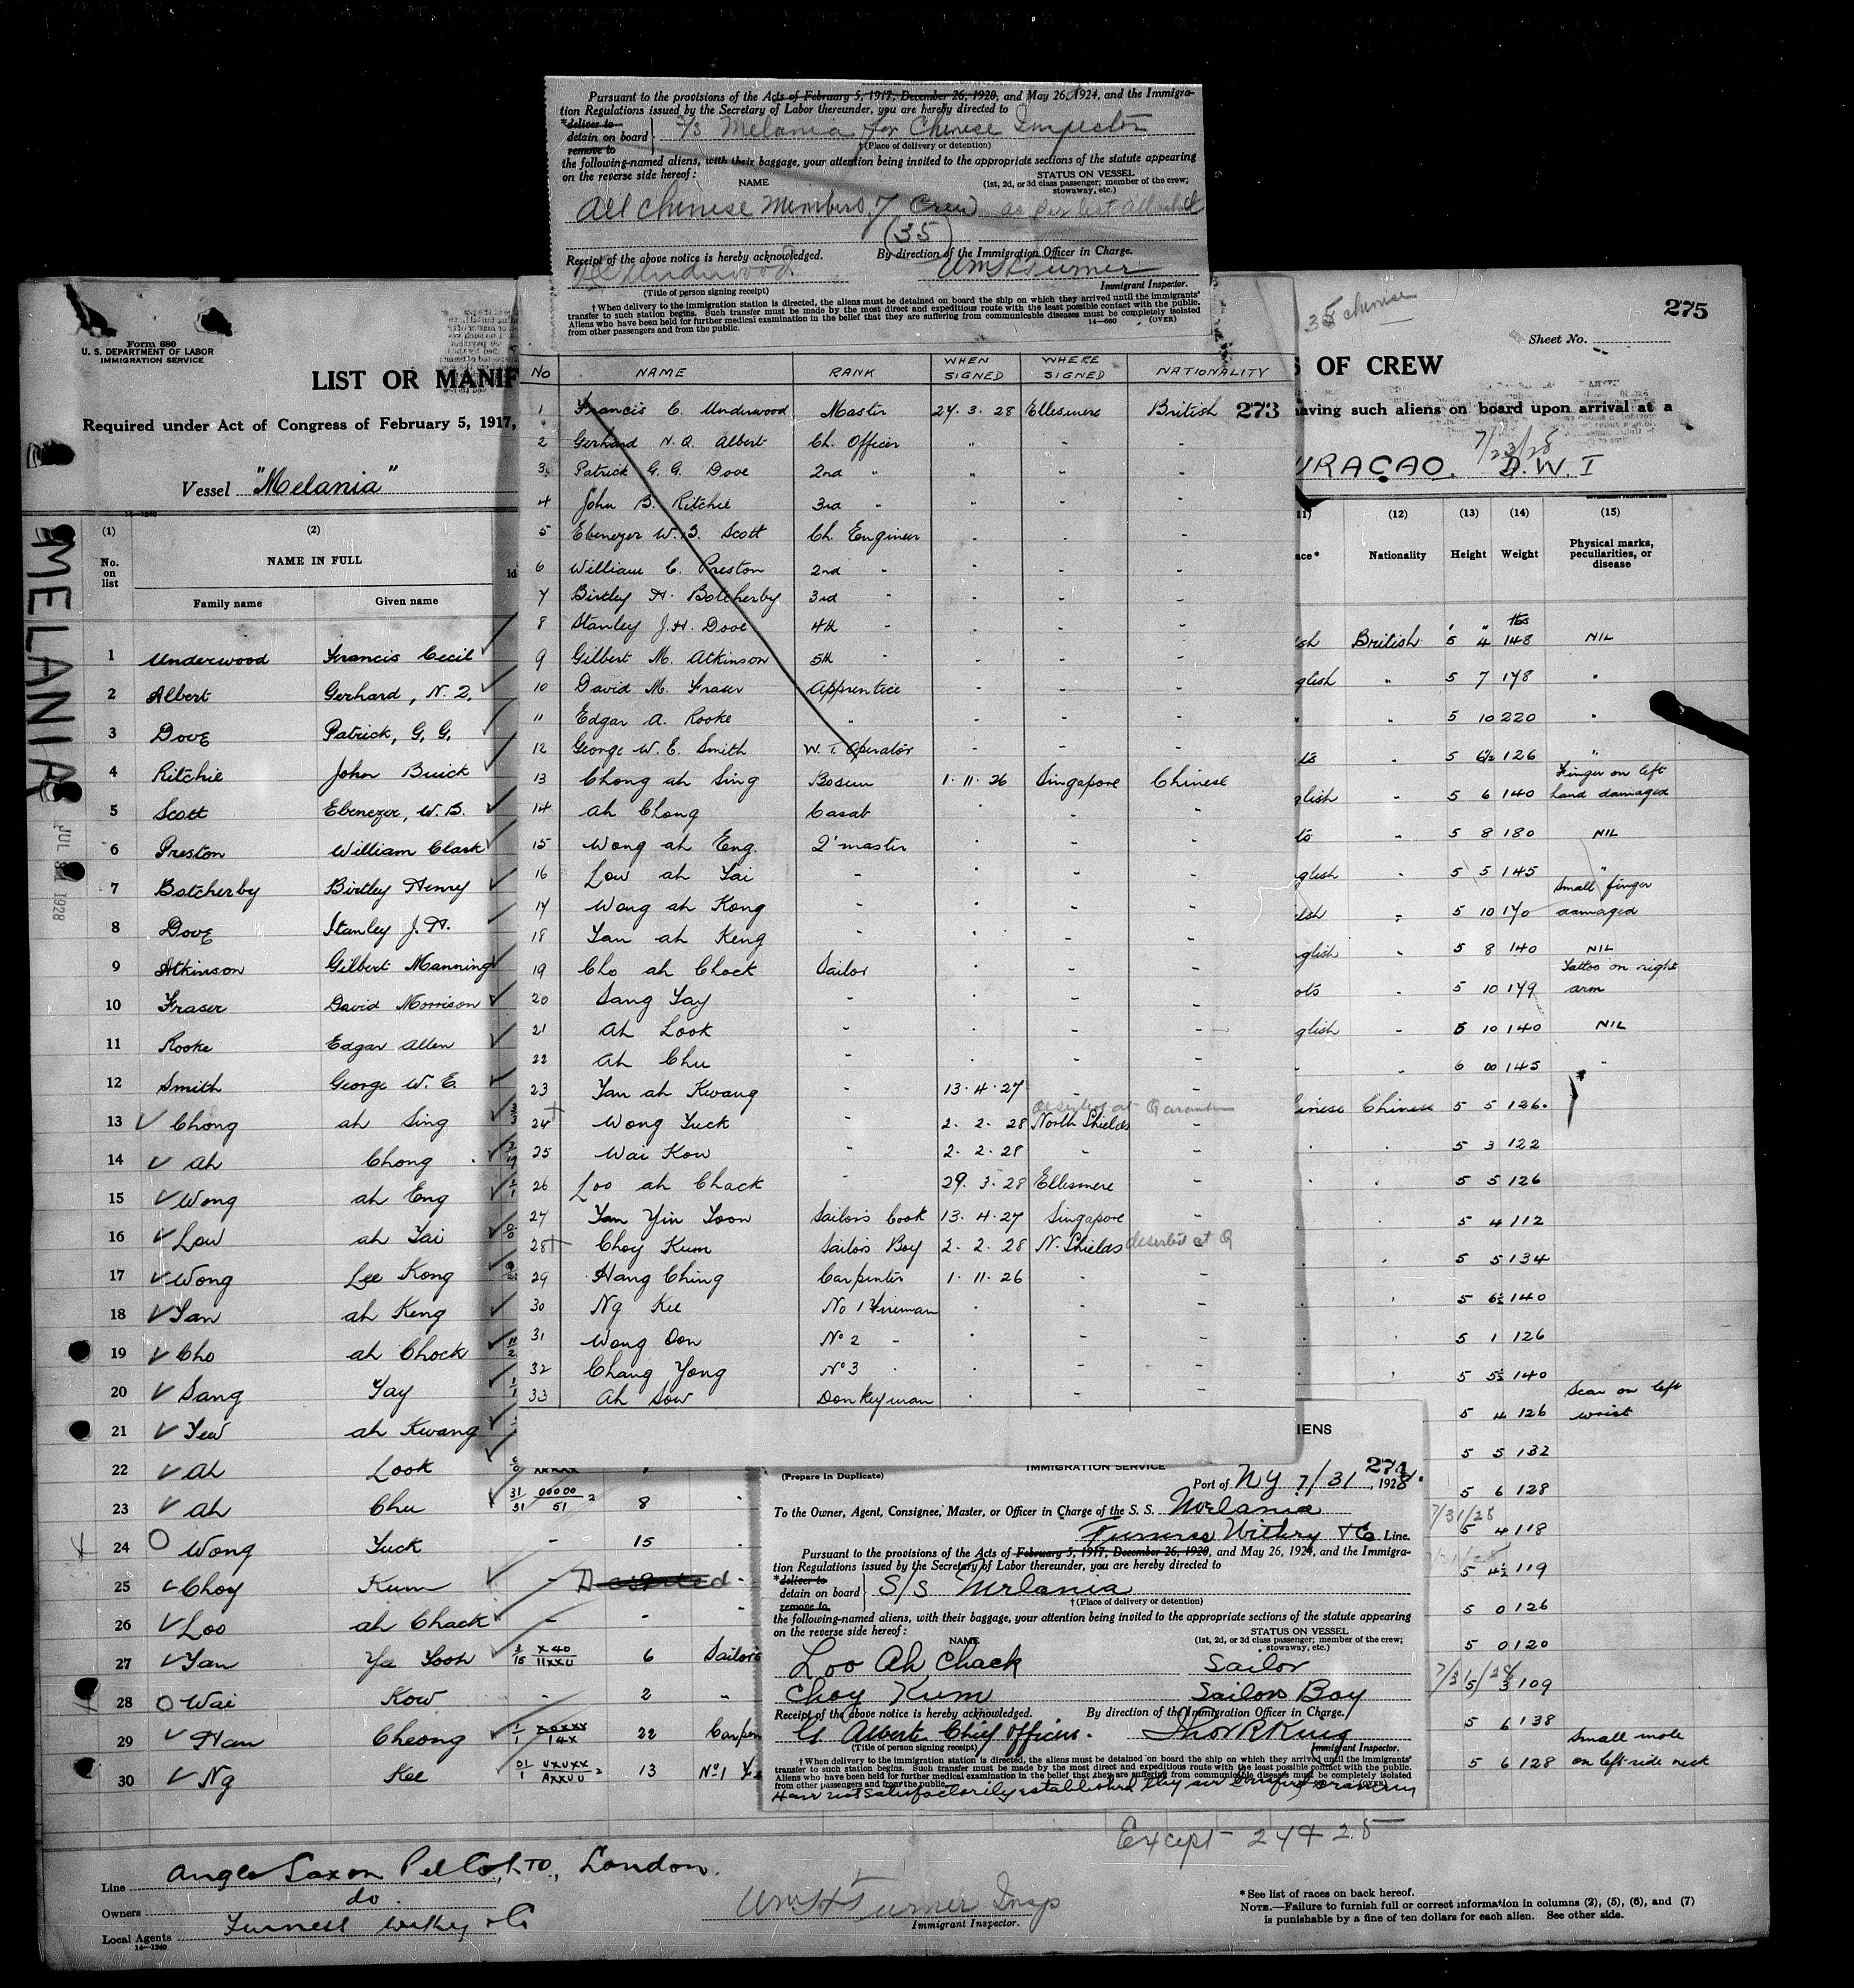 Pursuant to the provisions of the Acts of February 5, 1917, December 26, 1920, and May 26, 1924, and the Immigra-
tion Regulations issued by the Secretary of Labor thereunder, you are hereby directed to
*deliver to
detain on board
remove to
S/S Melania for Chinese Inspector
†(Place of delivery or detention)
the following-named aliens, with their baggage, your attention being invited to the appropriate sections of the statute appearing
on the reverse side hereof:
NAME
STATUS ON VESSEL
(1st, 2d, or 3d class passenger; member of the crew;
stowaway, etc.)
All Chinese Members of Crew as per list attached
(35)
Receipt of the above notice is hereby acknowledged. By direction of the Immigration Officer in Charge.
Underwood Wm H Turner
(Title of person signing receipt) Immigrant Inspector.
†When delivery to the immigration station is directed, the aliens must be detained on board the ship on which they arrived until the immigrants'
transfer to such station begins. Such transfer must be made by the most direct and expeditious route with the least possible contact with the public.
Aliens who have been held for further medical examination in the belief that they are suffering from communicable diseases must be completely isolated
from other passengers and from the public. 14—660 (OVER)
No NAME RANK WHEN SIGNED WHERE SIGNED NATIONALITY
1 Francis C. Underwood Master 24. 3. 28 Ellesmere British 273
2 Gerhard N. Q. Albert Ch. Officer " - -
3 Patrick G. G. Dove 2nd " " - -
4 John B. Ritchie 3rd " " - -
5 Ebenezer W. B. Scott Ch. Engineer - - -
6 William C. Preston 2nd - - - -
7 Birtley H. Botcherby 3rd " - - -
8 Stanley J. H. Dove 4th - - - -
9 Gilbert M. Atkinson 5th - - - -
10 David M. Fraser Apprentice - - -
11 Edgar A. Rooke " - - -
12 George W. E. Smith W. T. Operator - - -
13 Chong ah Sing Bosun 1. 11. 26 Singapore Chinese
14 ah Chong Casab - - -
15 Wong ah Eng. Q'master - - -
16 Low ah Tai - - - -
17 Wong ah Kong - - - -
18 Tan ah Keng - - - -
19 Cho ah Chock Sailor - - -
20 Sang Tay - - - -
21 Ah Look - - - -
22 Ah Chu - - - -
23 Tan ah Kwang - 13. 4. 27 - -
deserted at
24 Wong Yuck - 2. 2. 28 North Shields -
25 Wai Kow - 2. 2. 28 - -
26 Loo ah Chack - 29. 3. 28 Ellesmere -
27 Yan Yin Yoon Sailors Cook 13. 4. 27 Singapore -
28 Choy Kum Sailors Boy 2. 2. 28 N. Shields deserted at Q
29 Hang Ching Carpenter 1. 11. 26 - -
30 Ng Kee No 1 Fireman - - -
31 Wong Oon No 2 - - - -
32 Chang Yong No 3 - - -
33 Ah Sow Donkeyman - - -
Form 680
U. S. DEPARTMENT OF LABOR
IMMIGRATION SERVICE
LIST OR MANIF
S OF CREW
35 chinese
275
Sheet No.
Required under Act of Congress of February 5, 1917,
having such aliens on board upon arrival at a
Vessel "Melania"
7/23/28
URAÇAO. D.W.I
MELANIA
1928
(1) (2) 11) (12) (13) (14) (15)
No. on list NAME IN FULL ace* Nationality Height Weight Physical marks, peculiarities, or disease
Family name Given name
1 Underwood Francis Cecil sh British 5 4 148 NIL
2 Albert Gerhard, N. Q. glish " 5 7 178 "
3 Dove Patrick, G. G. " " 5 10 220 "
4 Ritchie John Buick ts - 5 6½ 126 "
5 Scott Ebenezer, W. B. glish - 5 6 140 Finger on left hand damaged
6 Preston William Clark ts - 5 8 180 NIL
7 Botcherby Birtley Henry glish - 5 5 145 "
8 Dove Stanley J. H. lish - 5 10 170 Small finger damaged
9 Atkinson Gilbert Manning glish - 5 8 140 NIL
10 Fraser David Morrison ots - 5 10 179 Tattoo on right arm
11 Rooke Edgar Allen glish - 5 10 140 NIL
12 Smith George W. E. - - 6 00 145 "
13 Chong ah Sing inese Chinese 5 5 126
14 ah Chong 5 3 122
15 Wong ah Eng 5 5 126
16 Low ah Tai 5 4 112
17 Wong Lee Kong 5 5 134
18 Tan ah Keng 5 6½ 140
19 Cho ah Chock 5 1 126
20 Sang Tay 5 5½ 140
21 Yew ah Kwang 5 4 126 Scar on left wrist
22 Ah Look 5 5 132
23 Ah Chu 8 5 6 128
24 Wong Yuck - 15 7/31/28 5 4 118
25 Choy Kum - Deserted 5 4½ 119
26 Loo ah Chack - - 5 0 126
27 Yan Ye Yooh 6 Sailors 5 0 120
28 Wai Kow - 2 - 7/31/28 5 3 109
29 Han Cheong 22 Carpen 5 6 138
30 Ng Kee 13 No 1 5 6 128 Small mole on left side neck
IENS
274
(Prepare in Duplicate) IMMIGRATION SERVICE
Port of NY 7/31, 1928.
To the Owner, Agent, Consignee, Master, or Officer in Charge of the S. S. Melania
Furness Withy & Co Line.
Pursuant to the provisions of the Acts of February 5, 1917, December 26, 1920, and May 26, 1924, and the Immigra-
tion Regulations issued by the Secretary of Labor thereunder, you are hereby directed to
*deliver to
detain on board
remove to
S/S Melania
†(Place of delivery or detention)
the following-named aliens, with their baggage, your attention being invited to the appropriate sections of the statute appearing
on the reverse side hereof:
NAME
STATUS ON VESSEL
(1st, 2d, or 3d class passenger; member of the crew;
stowaway, etc.)
Loo Ah Chack Sailor
Choy Kum Sailors Boy
Receipt of the above notice is hereby acknowledged. By direction of the Immigration Officer in Charge.
G Albert Chief Officer. Thos R King
(Title of person signing receipt) Immigrant Inspector.
†When delivery to the immigration station is directed, the aliens must be detained on board the ship on which they arrived until the immigrants'
transfer to such station begins. Such transfer must be made by the most direct and expeditious route with the least possible contact with the public.
Aliens who have been held for further medical examination in the belief that they are suffering from communicable diseases must be completely isolated
from other passengers and from the public. (OVER)
Have not satisfactorily established they are bonafide seamen
Except 24 + 25
Line Anglo Saxon Pet Co. LTD., London.
Owners do.
Local Agents Furness Withy & Co
14—1240
Wm H Turner Insp
Immigrant Inspector.
*See list of races on back hereof.
NOTE.—Failure to furnish full or correct information in columns (2), (5), (6), and (7)
is punishable by a fine of ten dollars for each alien. See other side.